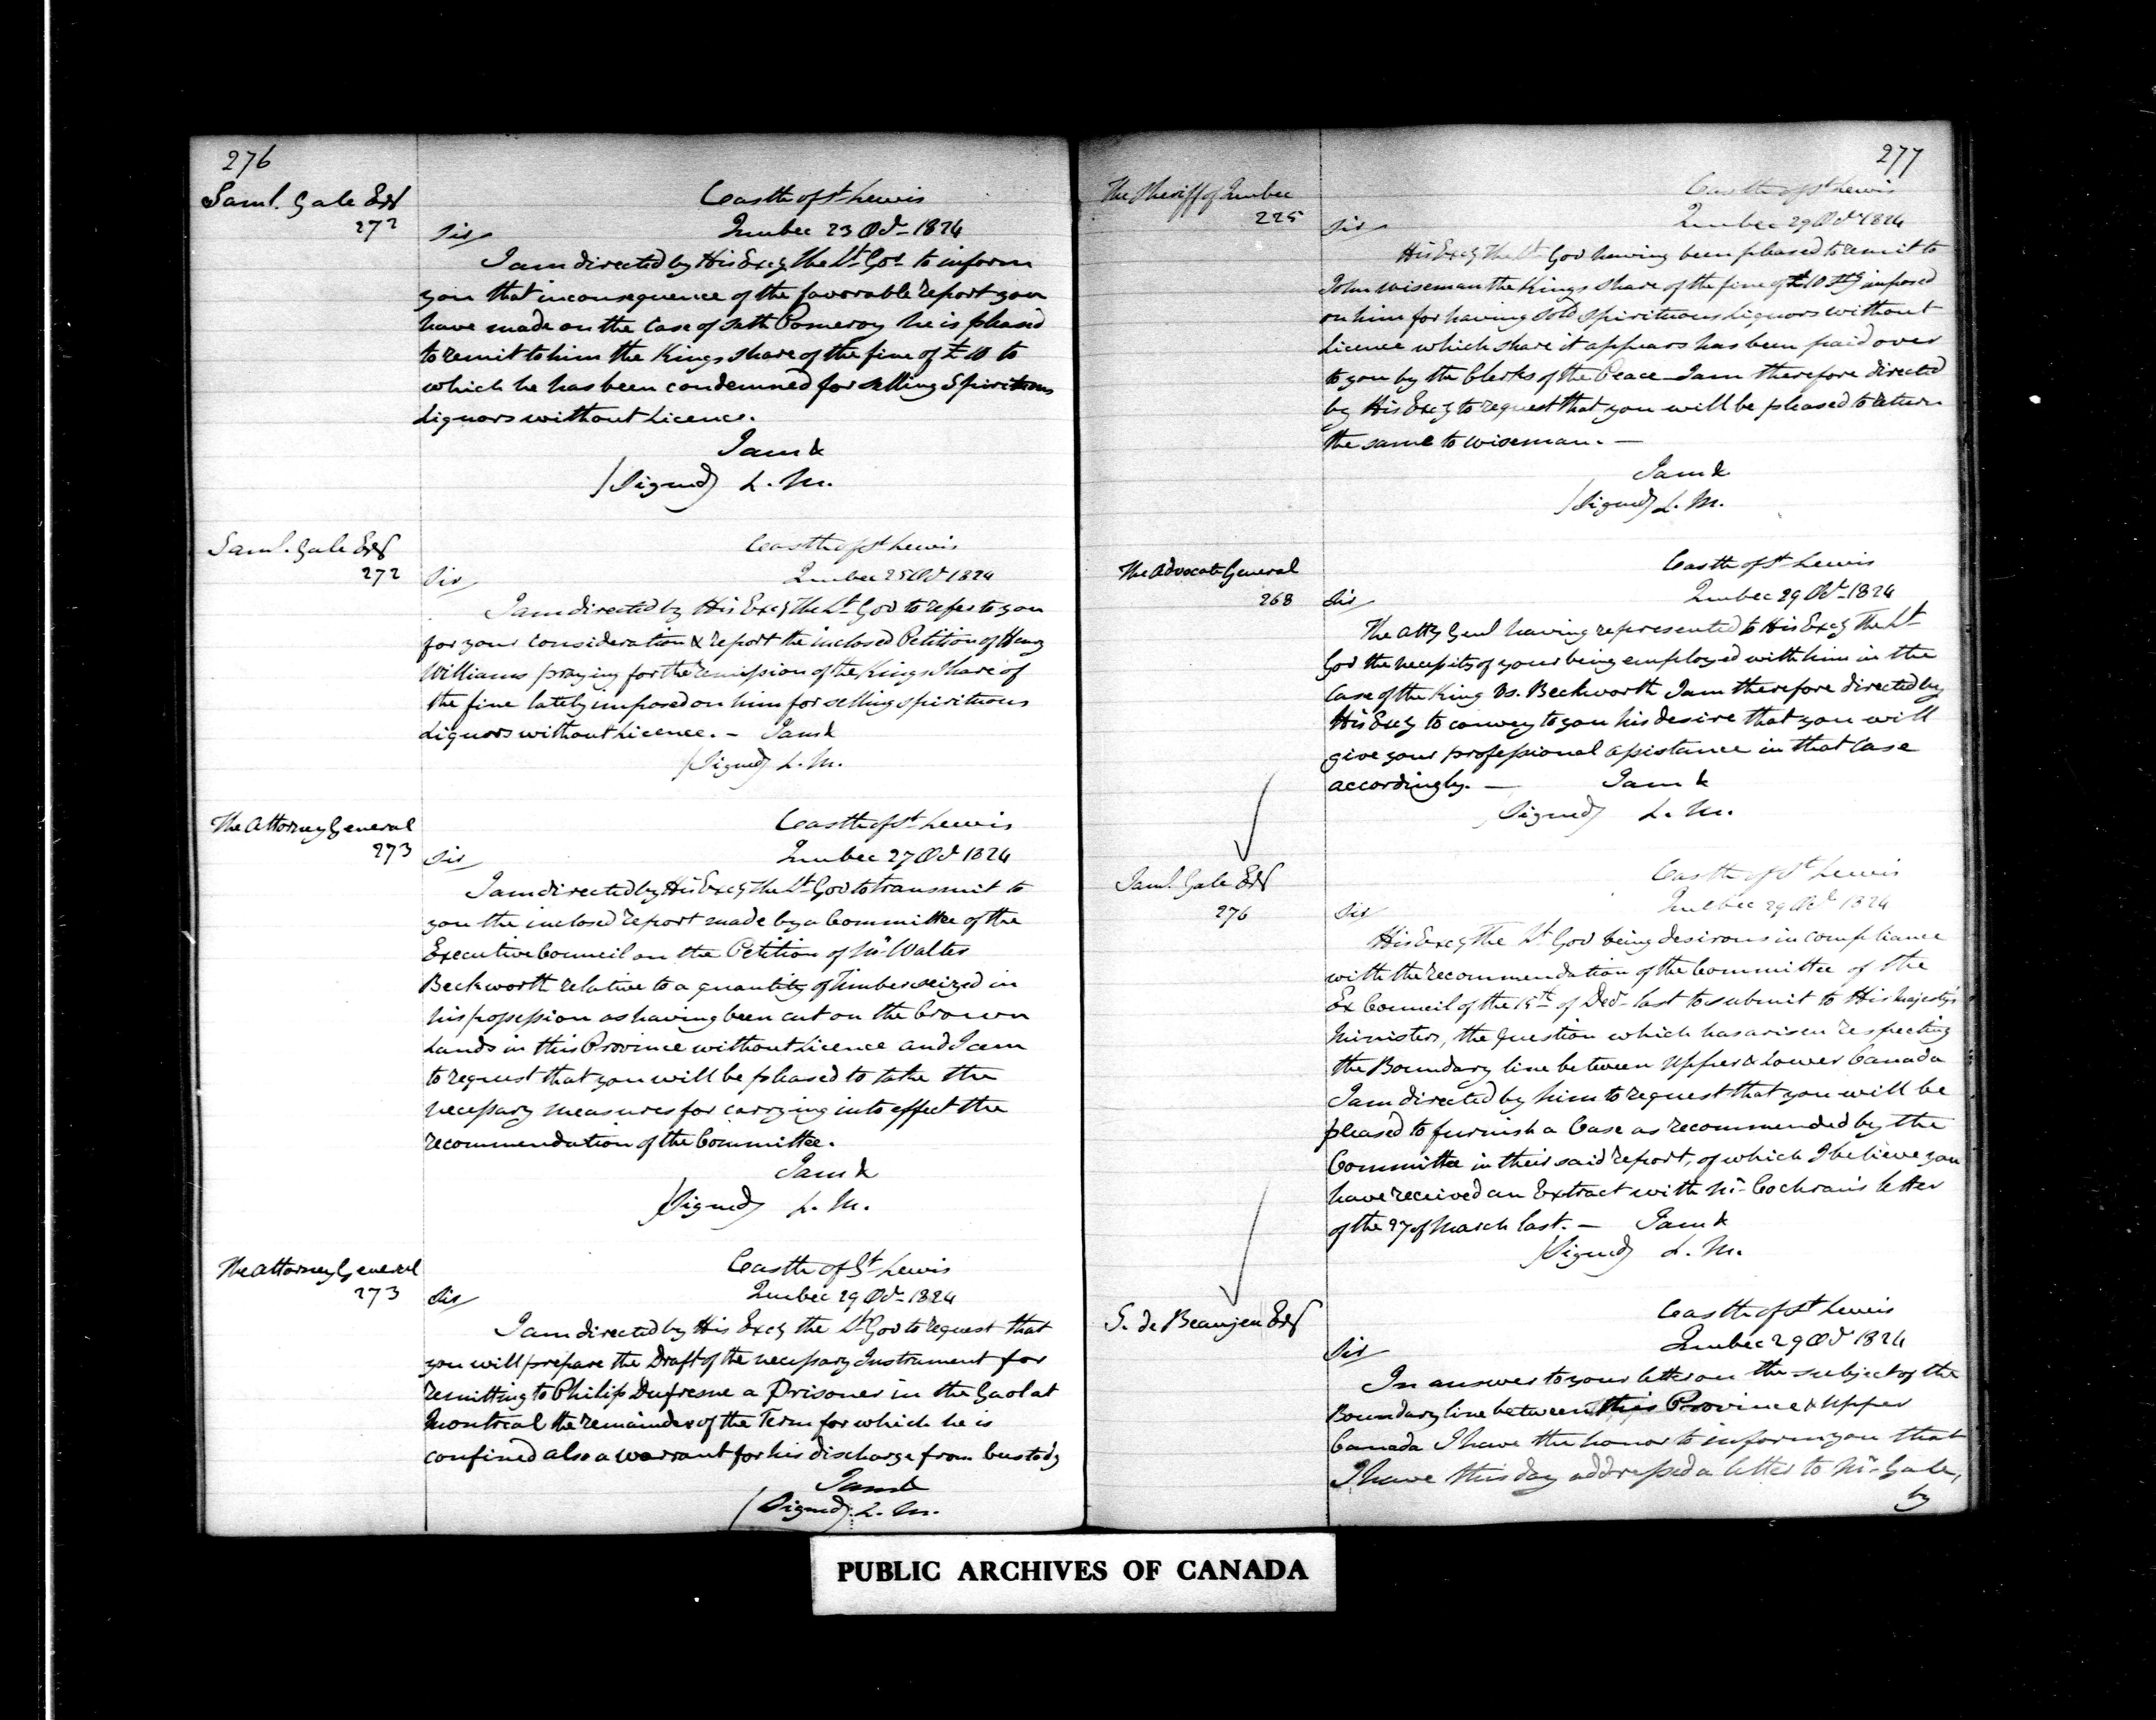 276
Saml. Gale Esqr
272
Castle of St Lewis
Quebec 23 Octr 1824
Sir
I am directed by His Excy the Lt Govr to inform
you that in consequence of the favorable report you
have made on the Case of Seth Pomeroy he is pleased
to remit to him the Kings share of the fine of £10 to
which he has been condemned for selling Spirituous
Liquors without Licence.
I am &
(Signed) L. M.
Saml. Gale Esqr
272
Castle of St Lewis
Quebec 25 Octr 1824
Sir
I am directed by His Excy The Lt Gov to refer to you
for your consideration & report the inclosed Petition of Henry
Williams praying for the remission of the Kings Share of
the fine lately imposed on him for selling spirituous
Liquors without Licence. - I am &
(Signed) L. M.
The Attorney General
273
Castle of St Lewis
Quebec 27 Oct 1824
Sir
I am directed by His Excy the Lt Gov to transmit to
you the inclosed report made by a Committee of the
Executive Council on the Petition of Mr Walter
Beckworth relative to a quantity of Timber seized in
his possession as having been cut on the Crown
Lands in this Province without Licence and I am
to request that you will be pleased to take the
necessary measures for carrying into effect the
recommendation of the Committee.
I am &
(Signed) L. M.
The Attorney General
273
Castle of St Lewis
Quebec 29 Oct 1824
Sir
I am directed by His Excy the Lt Gov to request that
you will prepare the Draft of the necessary Instrument for
remitting to Philip Dufresne a Prisoner in the Gaol at
Montreal the remainder of the Term for which he is
confined also a warrant for his discharge from Custody
I am &
(Signed) L. M.
277
The Sheriff of Quebec
225
Castle of St Lewis
Quebec 29 Oct 1824
Sir
His Excy The Lt Gov having been pleased to remit to
John Wiseman the Kings share of the fine of £10 Stg imposed
on him for having sold Spirituous Liquors without
Licence which share it appears has been paid over
to you by the Clerks of the Peace I am therefore directed
by His Excy to request that you will be pleased to return
the same to Wiseman. -
I am &
(Signed) L. M.
The Advocate General
268
Castle of St Lewis
Quebec 29 Oct 1824
Sir
The Atty Genl having represented to His Excy The Lt
Gov the necessity of your being employed with him in the
Case of the King vs. Beckworth I am therefore directed by
His Excy to convey to you his desire that you will
give your professional assistance in that Case
accordingly. - I am &
(Signed) L. M.
Saml. Gale Esqr
276
Castle of St Lewis
Quebec 29 Oct 1824
Sir
His Excy The Lt Gov being desirous in compliance
with the recommendation of the Committee of the
Ex Council of the 15th of Decr last to submit to His Majesty's
Ministers, the question which has arisen respecting
the Boundary line between Upper & Lower Canada
I am directed by him to request that you will be
pleased to furnish a Case as recommended by the
Committee in their said report, of which I believe you
have received an Extract with Mr Cochran's letter
of the 27 of March last. - I am &
(Signed) L. M.
S. de Beaujeu Esqr
Castle of St Lewis
Quebec 29 Oct 1824
Sir
In answer to your letter on the subject of the
Boundary line between this Province & Upper
Canada I have the honor to inform you that
I have this day addressed a letter to Mr Gale,
by
PUBLIC ARCHIVES OF CANADA